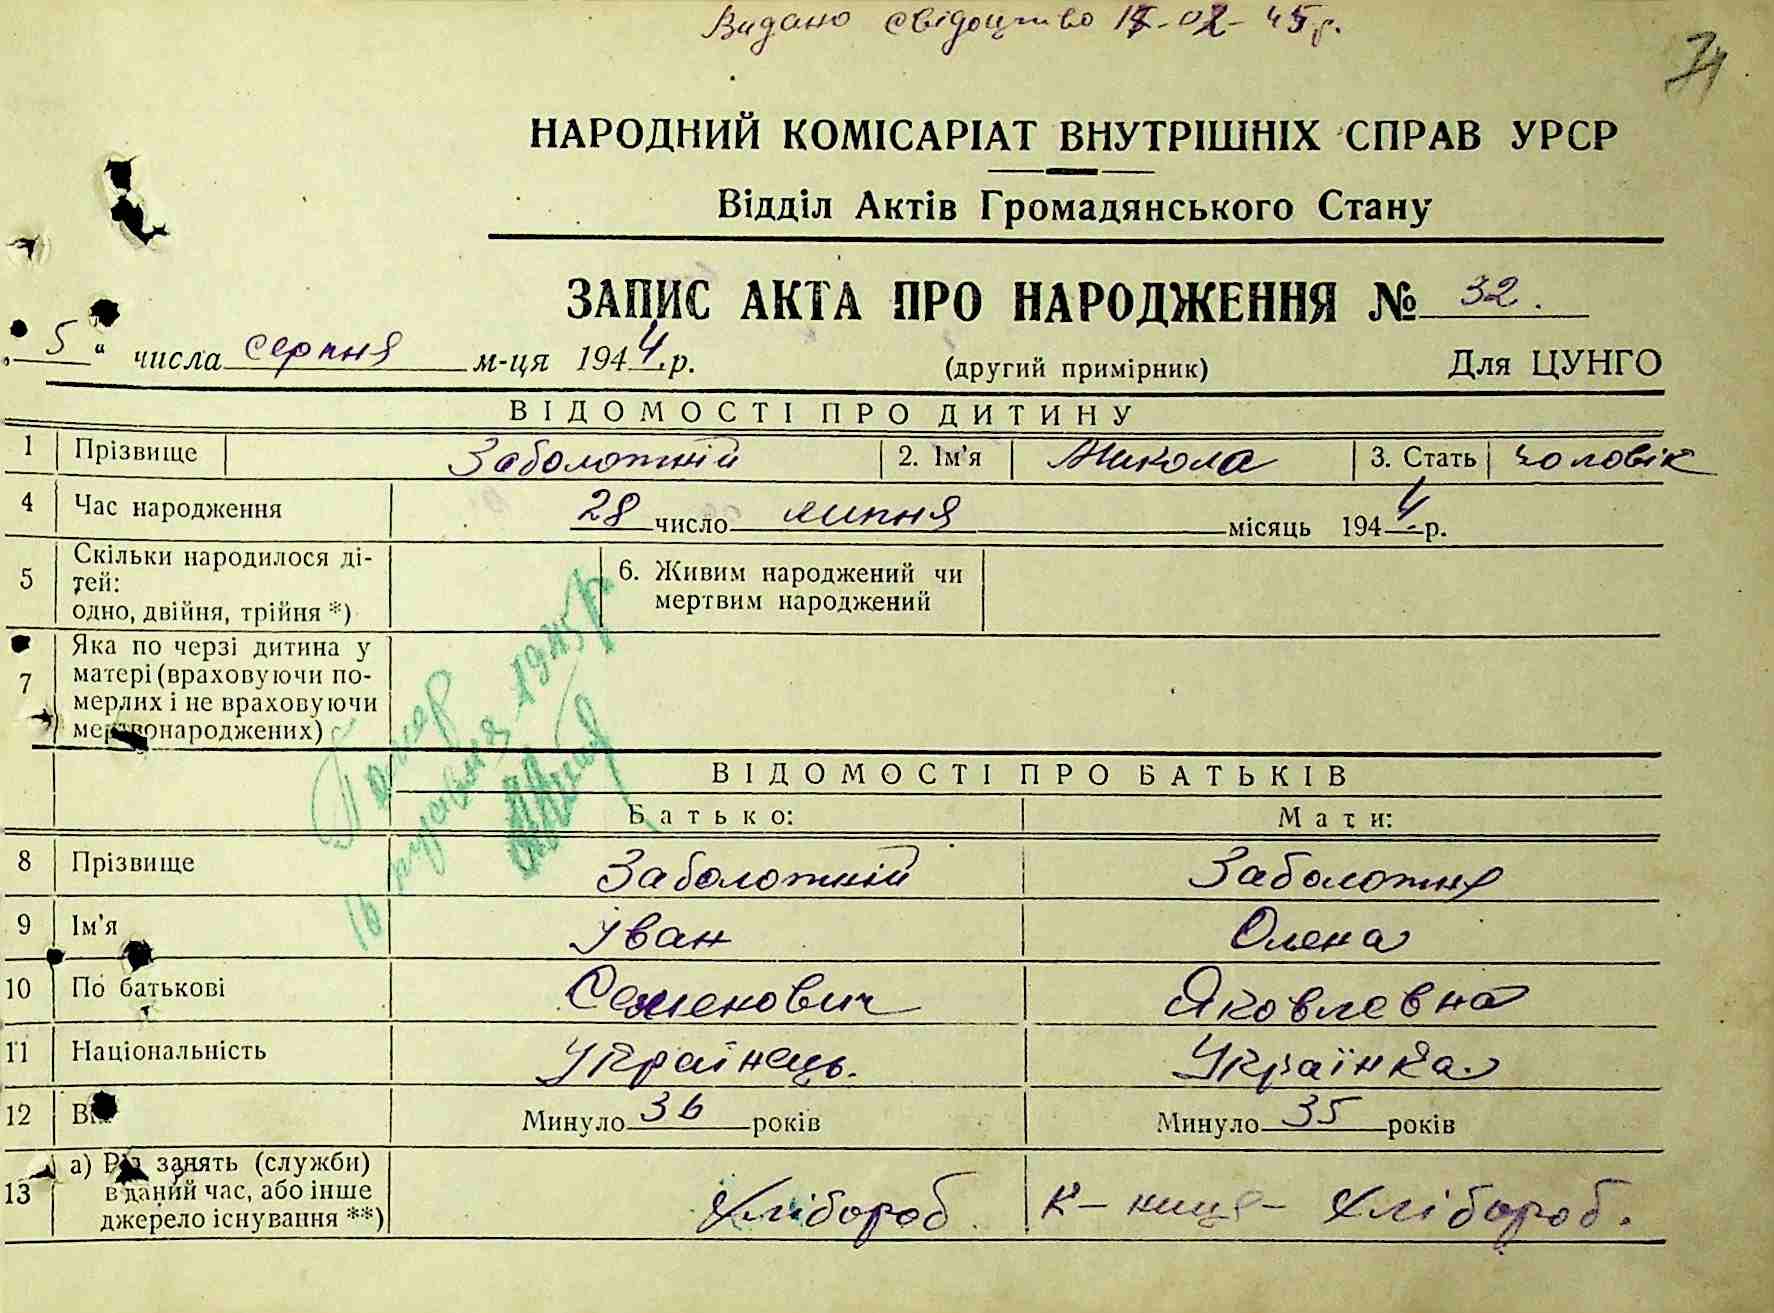 Видано свідоцтво 17-02-45р.
НАРОДНИЙ КОМІСАРІАТ ВНУТРІШНІХ СПРАВ УРСР
Відділ Актів Громадянського Стану
ЗАПИС АКТА ПРО НАРОДЖЕННЯ № 32.
„ 5 “ числа серпня м-ця 1944.р. (другий примірник) Для ЦУНГО
ВІДОМОСТІ ПРО ДИТИНУ
1 Прізвище Заболотній 2. Ім'я Микола 3. Стать чоловік
4 Час народження 28 число липня місяць 1944 р.
5 Скільки народилося ді-
тей:
одно, двійня, трійня *)
6. Живим народжений чи
мертвим народжений
7 Яка по черзі дитина у
матері (враховуючи по-
мерлих і не враховуючи
мертвонароджених)
Помер
16 грудня 1945 р
ВІДОМОСТІ ПРО БАТЬКІВ
Батько: Мати:
8 Прізвище Заболотній Заболотня
9 Ім'я Іван Олена
10 По батькові Семенович Яковлевна
11 Національність Українець. Українка
12 Вік Минуло 36 років Минуло 35 років
13 а) Рід занять (служби)
в даний час, або інше
джерело існування **)
Хлібороб К-ниця- Хлібороб.